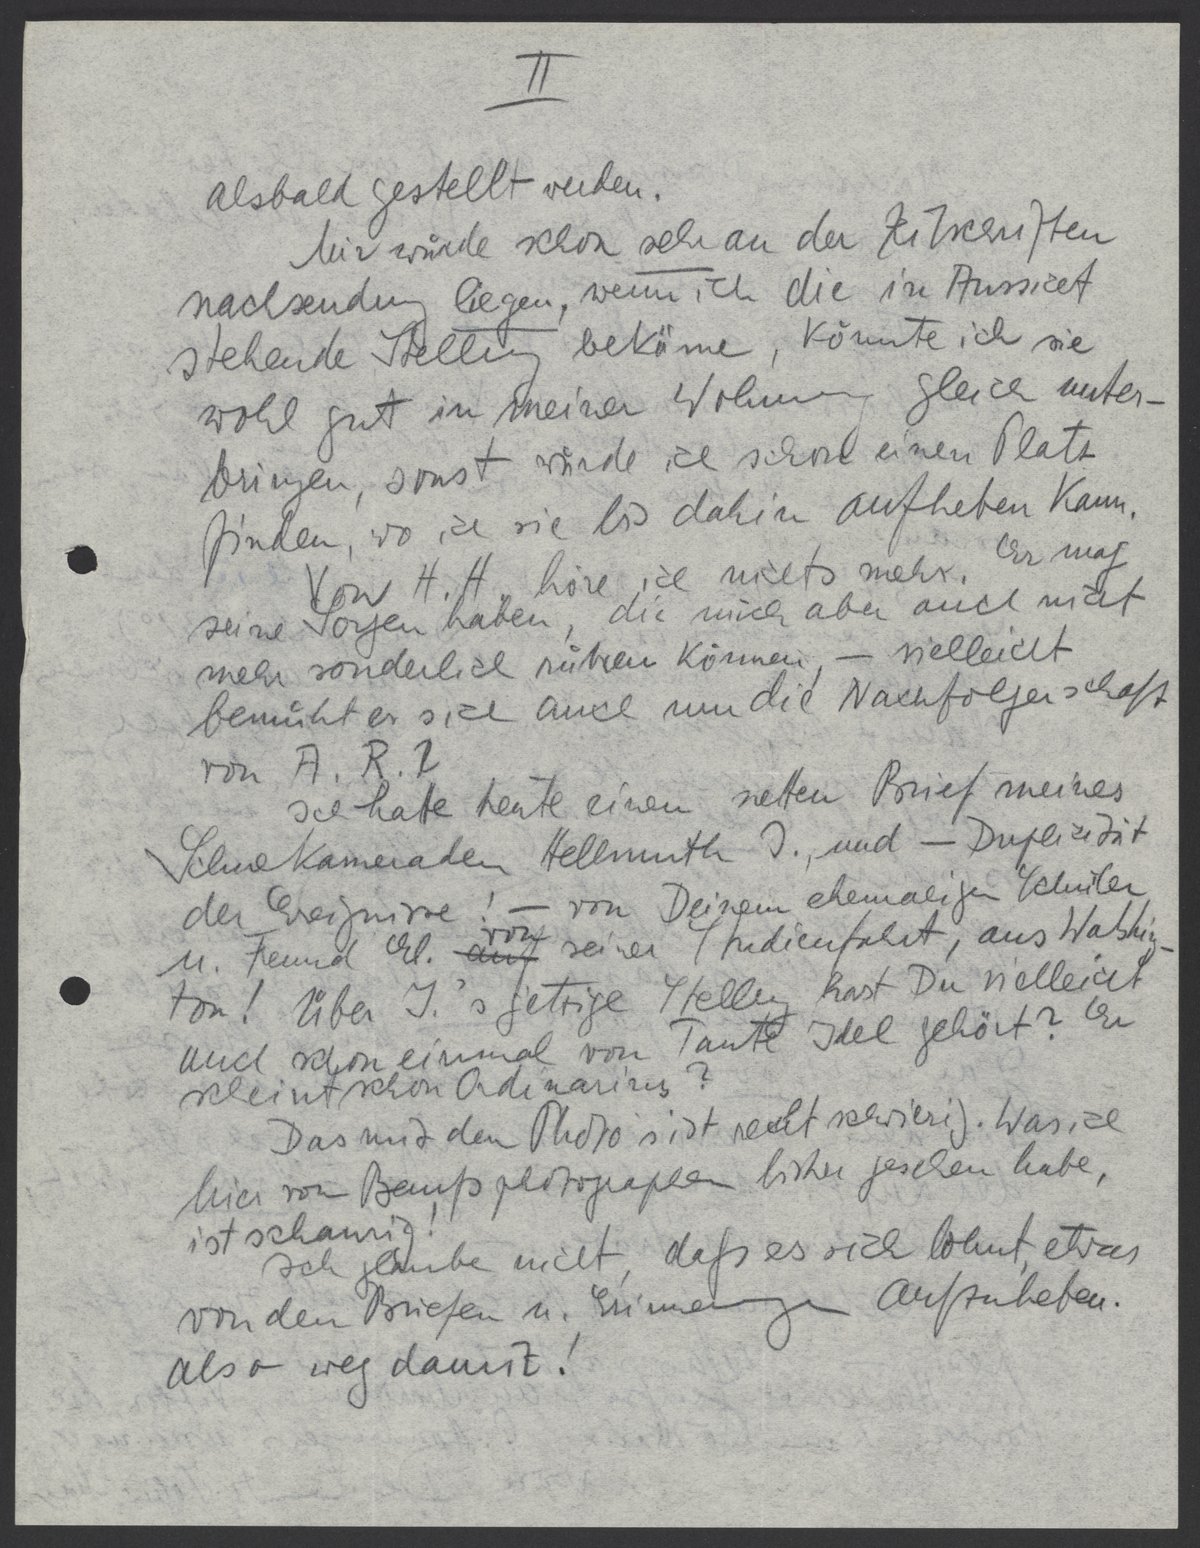 II
alsbald gestellt werden.
Mir würde schon sehr an der Zeitschriften
nachsendung liegen, wenn ich die in Aussicht
stehende Stellung bekäme, könnte ich sie
wohl gut in meiner Wohnung gleich unter-
bringen, sonst würde ich schon einen Platz
finden, wo ich sie bis dahin aufheben kann.
Von H. H. höre ich nichts mehr. Er mag
seine Sorgen haben, die mich aber auch nicht
mehr sonderlich rühren können, – vielleicht
bemüht er sich auch um die Nachfolgerschaft
von A. R.?
Ich hatte heute einen netten Brief meines
Schulkameraden Hellmuth J., und – Duplizität
der Ereignisse! – von Deinem ehemaligen Schüler
u. Freund El. auf von seiner Studienfahrt, aus Washing-
ton! Über J.'s jetzige Stellung hast Du vielleicht
auch schon einmal von Tante Idel gehört? Er
scheint schon Ordinarius?
Das mit den Photo's ist recht schwierig. Was ich
hier von Berufsphotographen bisher gesehen habe,
ist schaurig!
Ich glaube nicht, daß es sich lohnt, etwas
von den Briefen u. Erinnerungen aufzuheben.
also weg damit!